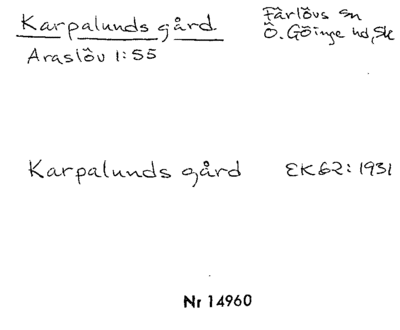 Karpalunds gård.
Färlövs sn
Araslöv 1:55
Ö. Göinge hd, Sk
Karpalunds gård EK62: 1931
Nr 14960